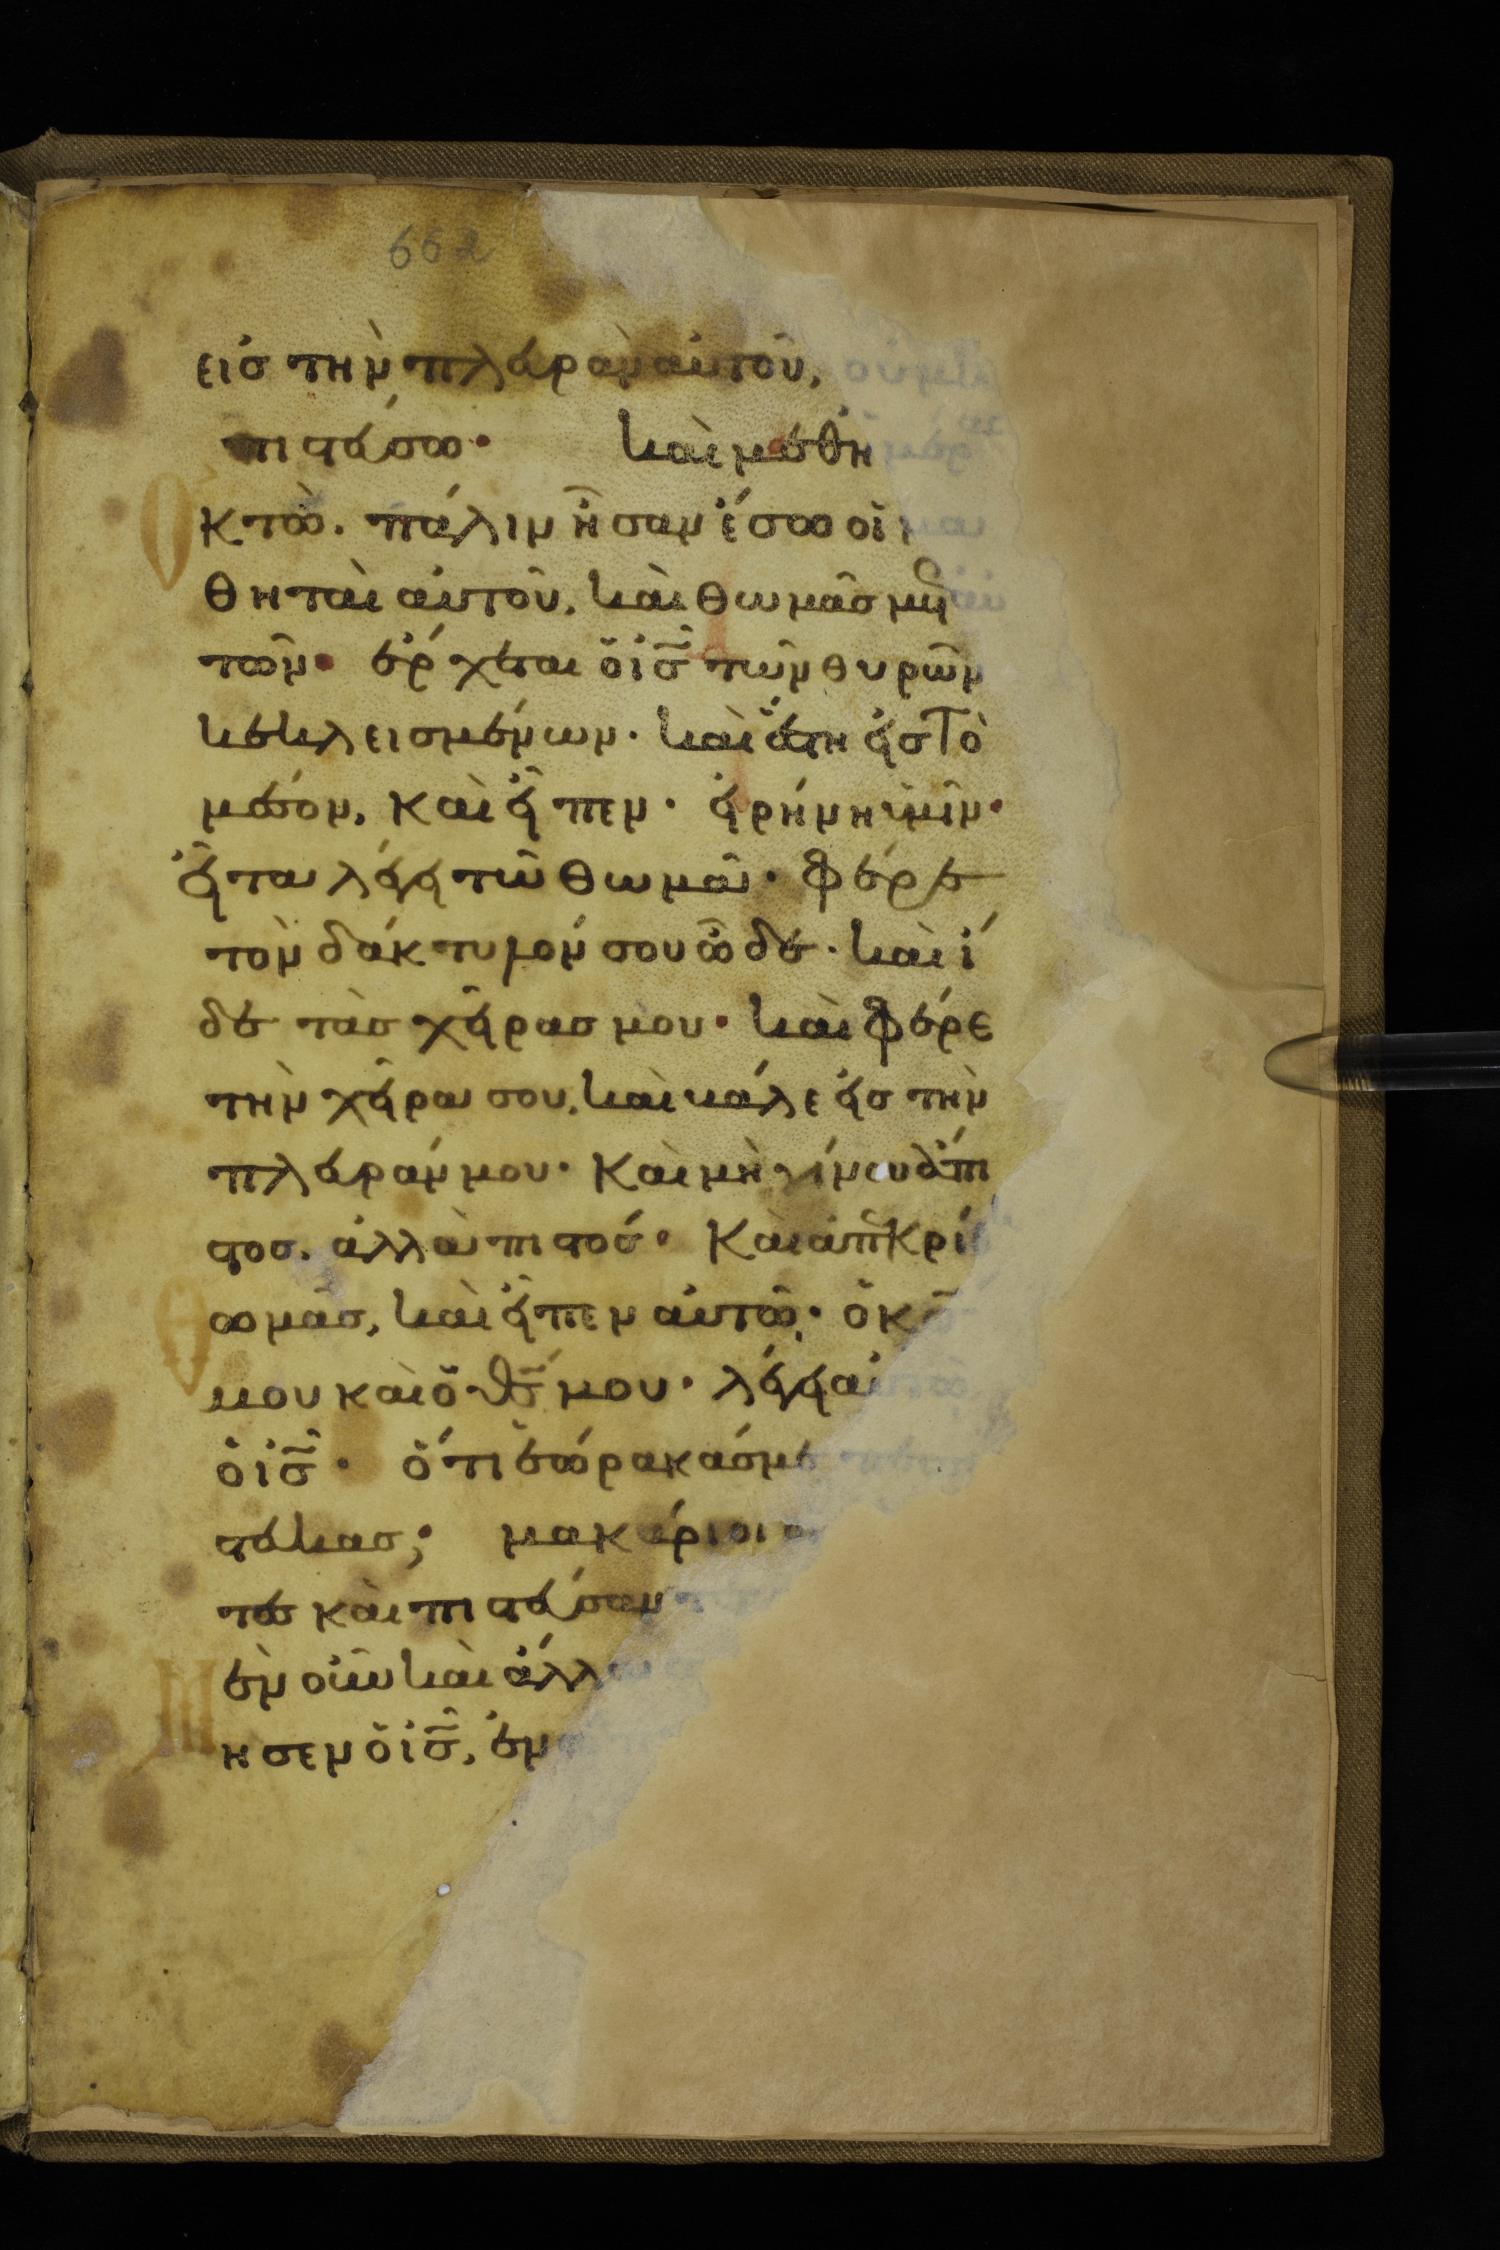 662
εἰς τὴν πλευρὰν αὐτοῦ,
πιστεύσω· καὶ μεθη
κτὼ. πάλιν ἦσαν ἔσω οἱ
θηταὶ αὐτοῦ, καὶ θωμᾶς μετ
τῶν· ἔρχεται ὁ ις τῶν θυρῶν
κεκλεισμένων· καὶ ἔστη εἰς τὸ
μέσον, καὶ εἶπεν· εἰρήνη ὑμῖν·
εἶτα λέγει τῶ θωμᾶ· φέρε
τὸν δάκτυλόν σου ὧδε· καὶ ἴ
δε τὰς χεῖρας μου· καὶ φέρε
τὴν χεῖρα σου, καὶ βάλε εἰς τὴν
πλευράν μου· καὶ μὴ γίνου ἄπι
στος. ἀλλὰ πιστός· καὶ ἀπεκρί
Θωμᾶς, καὶ εἶπεν αὐτῶ· ὁ κς
μου καὶ ὁ θς μου· λέγει αὐ
ὁ ις· ὅτι ἑώρακάς με
στευκας; μακάριοι
τες καὶ πιστεύσαν
ὲν οὖν καὶ ἄλλα
ησεν ὁ ις, ἐν